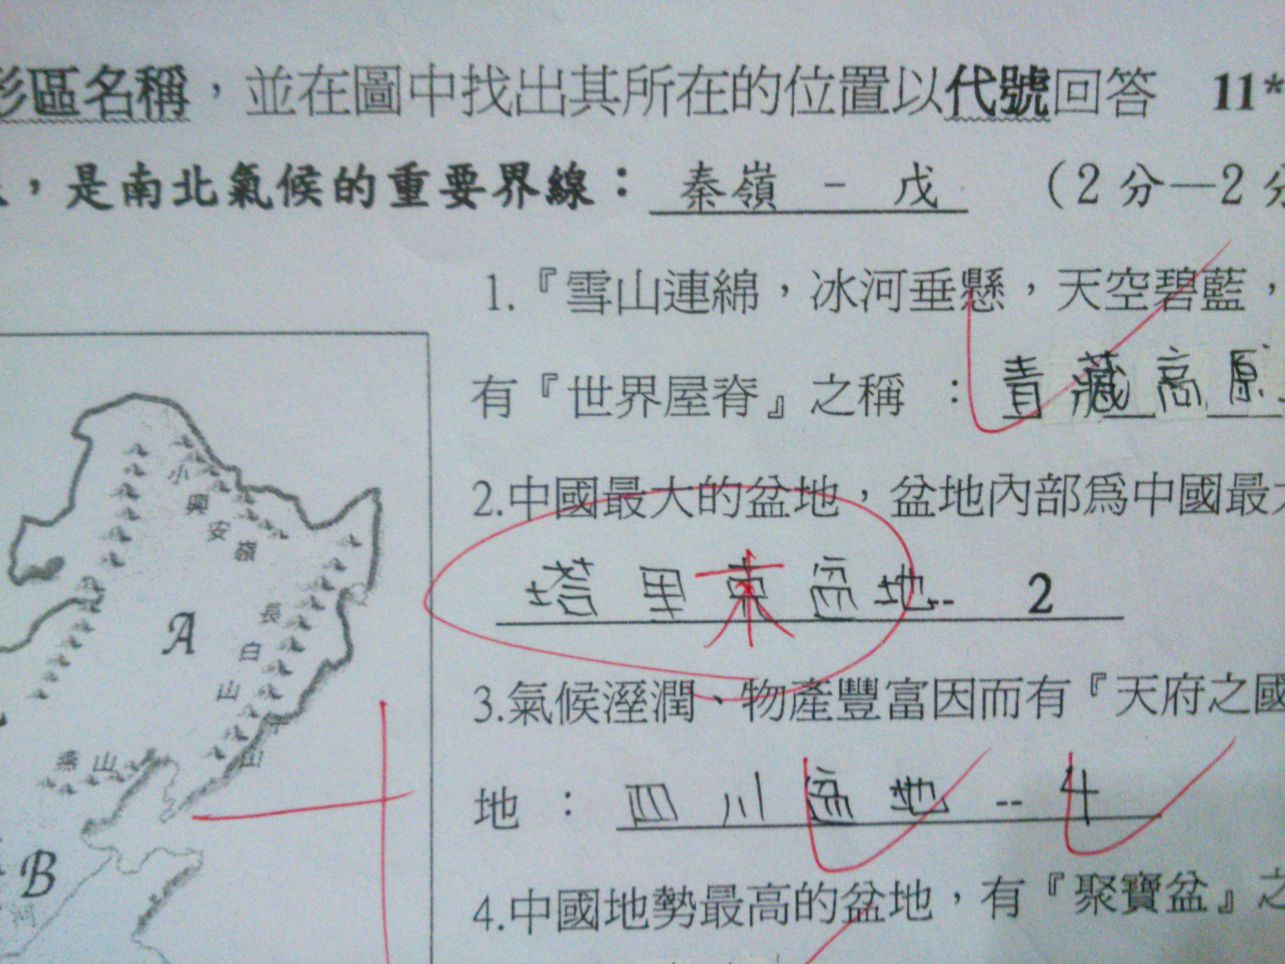 形區名稱，並在圖中找出其所在的位置以代號回答 11*
，是南北氣候的重要界線：秦嶺 - 戊 （2分—2分
1.『雪山連綿，冰河垂懸，天空碧藍，
有『世界屋脊』之稱 ：青藏高原
2.中國最大的盆地，盆地內部為中國最大
塔里東盆地-- 2
3.氣候溼潤、物產豐富因而有『天府之國
地 ：四川盆地 -- 4
4.中國地勢最高的盆地，有『聚寶盆』之
小興安嶺
長白山
A
山
燕山
B
河